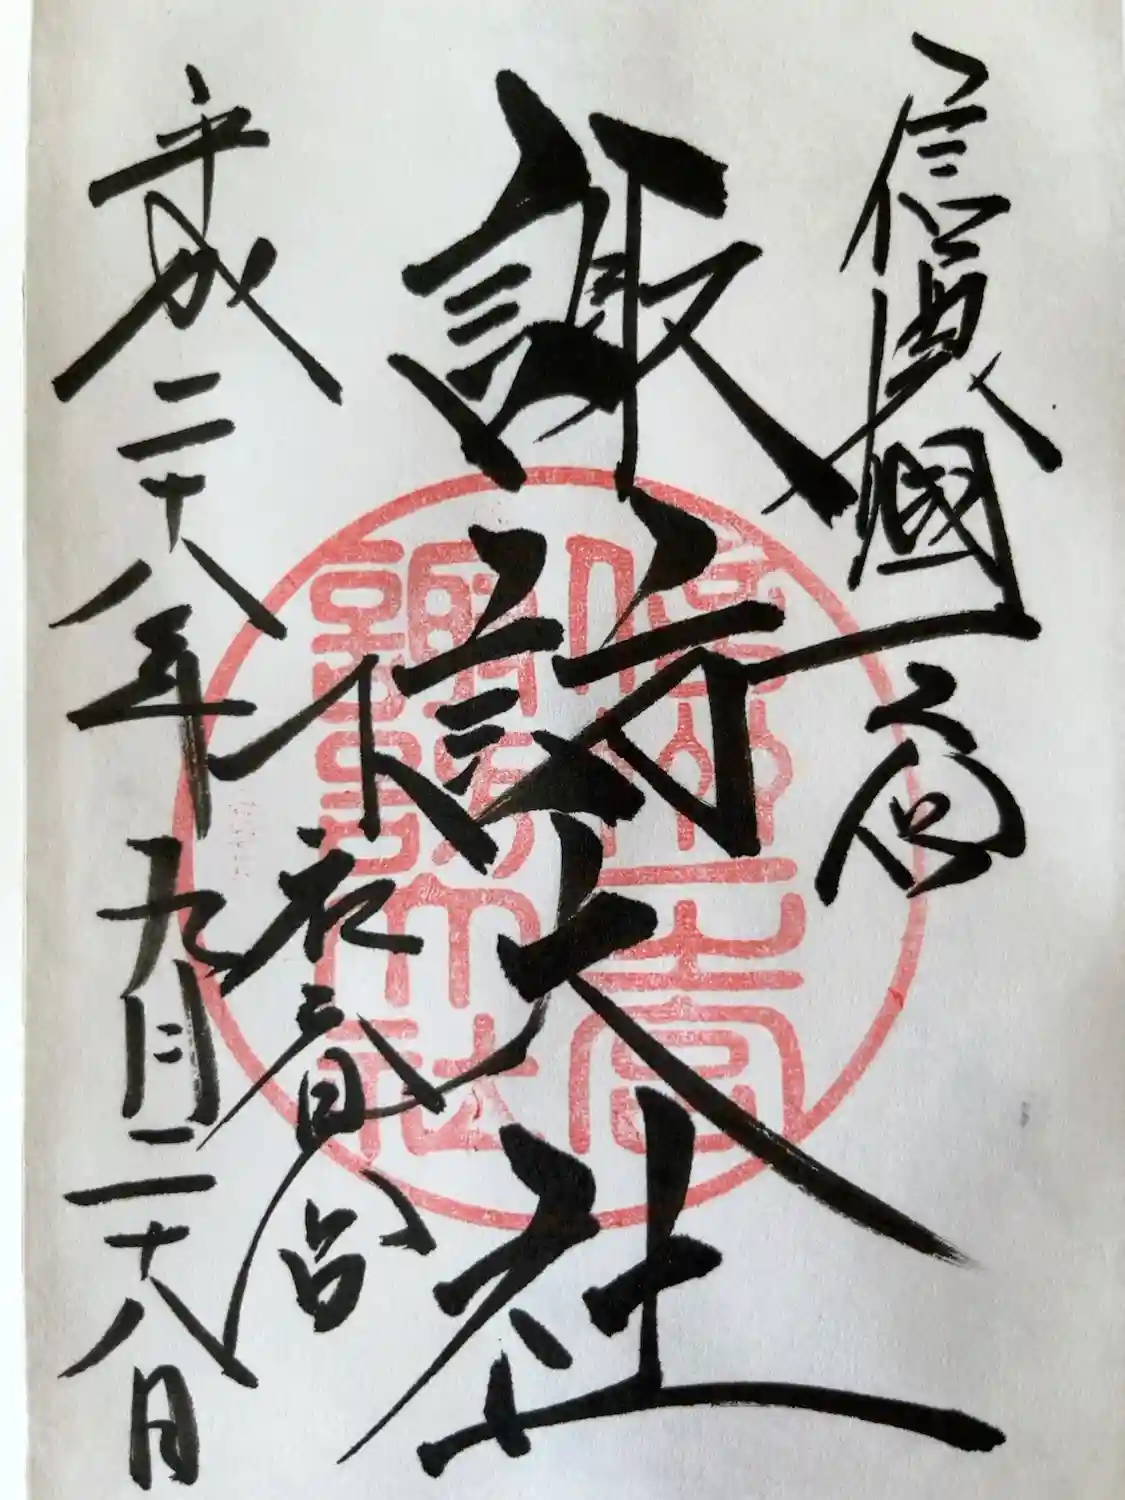 信濃國一宮
諏訪大社
下社春宮
平成二十八年九月二十八日
信州一之宮
諏訪大社